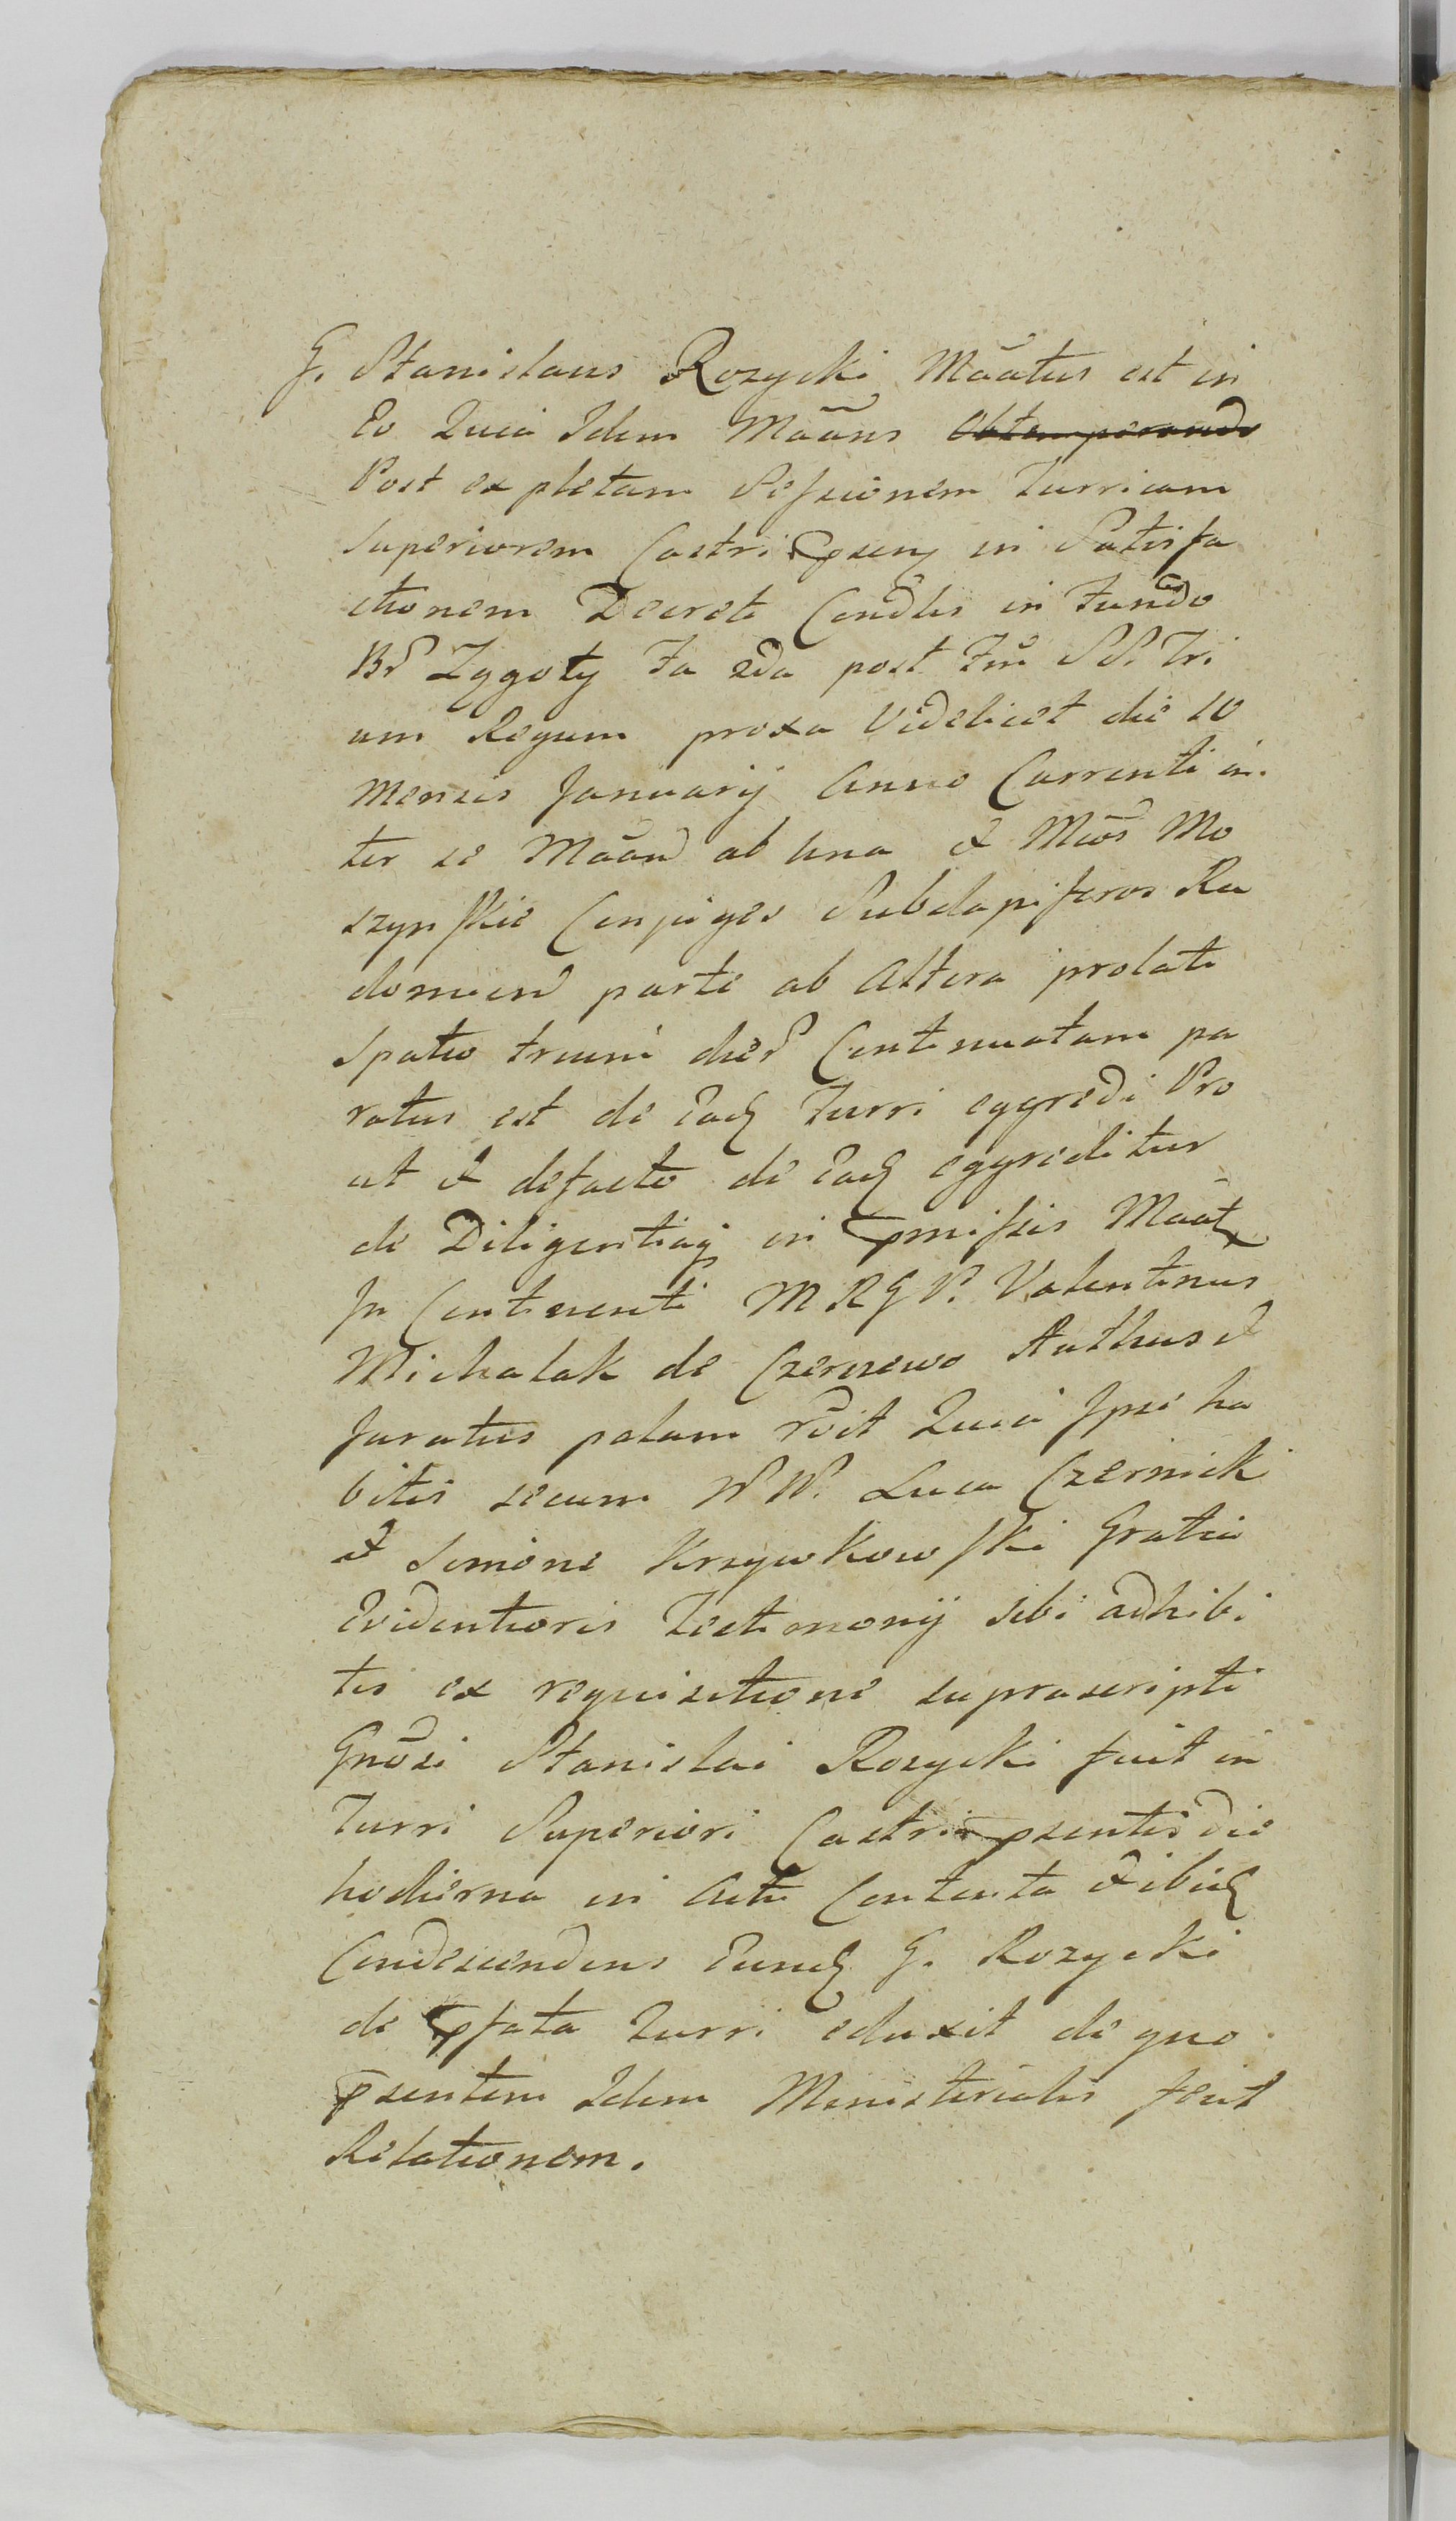 G. Stanislaus Rozycki Mãatus est in
Eo Quia Idem Mãans Obtemperando
Post expletam Sessionem Turricam
Superiorem Castri psen in Satisfa
ctionem Decreti Condlis in Fundo
Br Zygoty Fa 2da post Fm SS. Tri
um Regum proxa Videlicet die 10
Mensis Januarij Anno Currenti in
ter se Mãan ab una et Mcos Mo
szynskie Conjuges Subdapiferos Ra
domien parte ab Altera prolati
Spatio trium dier Continuatam pa
ratus est de Ead Turri eggredi Pro
ut et defacto de Ead eggreditur
de Diligentiaq in pmissis Mãat
In Continenti M R G P. Valentinus
Michalak de Czerniewo Authus et
Juratus palam rdit Quia Ipse ha
bitis secum NN. Luca Czernick
et Simone Krzywkowski Gratia
Evidentioris Testimonij sibi adhibi
tis ex requisitione suprascripti
Gnosi Stanislai Rozycki fuit in
Turri Superiori Castri psentis die
hodierna in Actu Contenta et ibid
Condescendens Eund G. Rozycki
de pfata Turri eduxit de quo
psentem Idem Ministerialis fecit
Relationem.